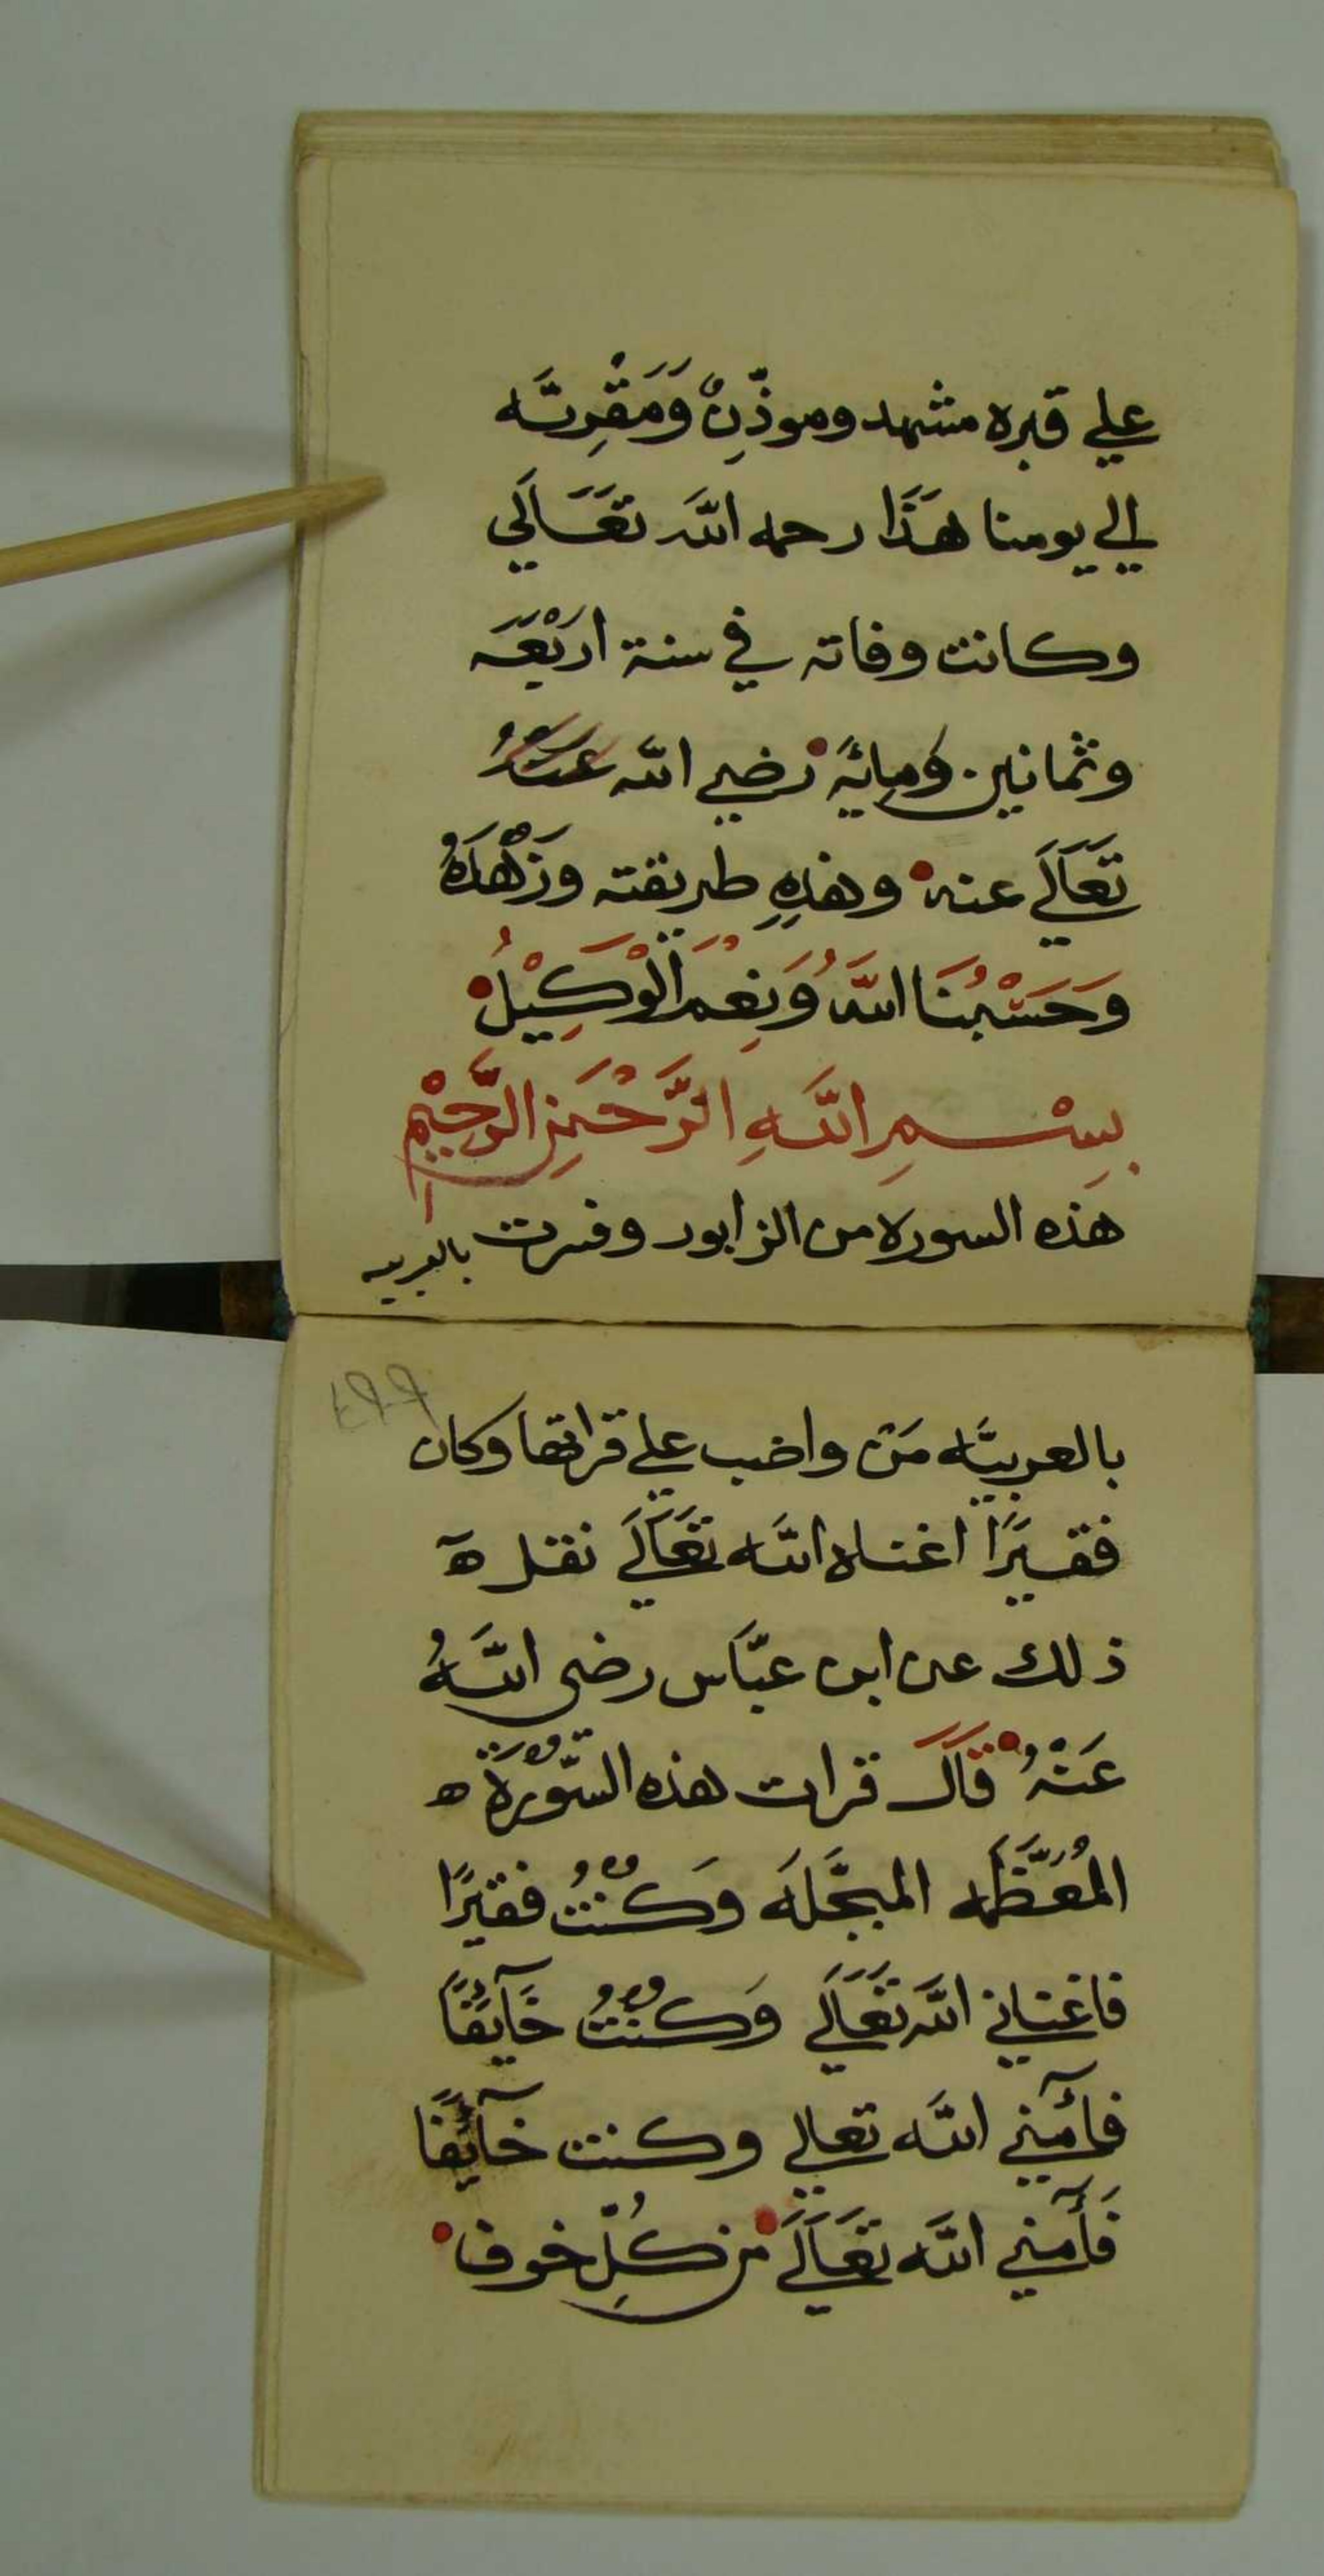 علي قبره مشهد وموذّنٌ وَمَقْرِيَه
الي يومنا هَذَا رحمه اللّه تعَالَي
وكانت وفاته في سنة اربْعَه
وثمانين ومِائَة رَضي اللّه عَنهُ
تَعَالَي عنه وهذِهِ طريقته وزُهْدَهُ
وَحَسْبُنَا اللَّهُ وَنِعْمَ الْوَكِيْلُ
بِسْمِ اللَّهِ الرَّحْمَنِ الرَّحِيْمِ
هذه السوره من الزابور وفسرت بالعربيه
بالعربيَّه مَن واضب علي قراتها وكان
فقيرًا اغناه اللَّه تعَالَي نقل
ذلك عن ابن عبّاس رضى اللَّهُ
عَنْهُ قَالَ قرات هذه السُّوْرَة
المُعَظَّمه المبجَّلَه وَكُنْتُ فقيرًا
فاغناني اللَّه تعَالَي وَكُنْتُ خَآيِفًا
فأمّنني اللَّه تعالي وكنت خآيفًا
فَأَمنني اللَّه تعَالَي من كُلِّ خوف